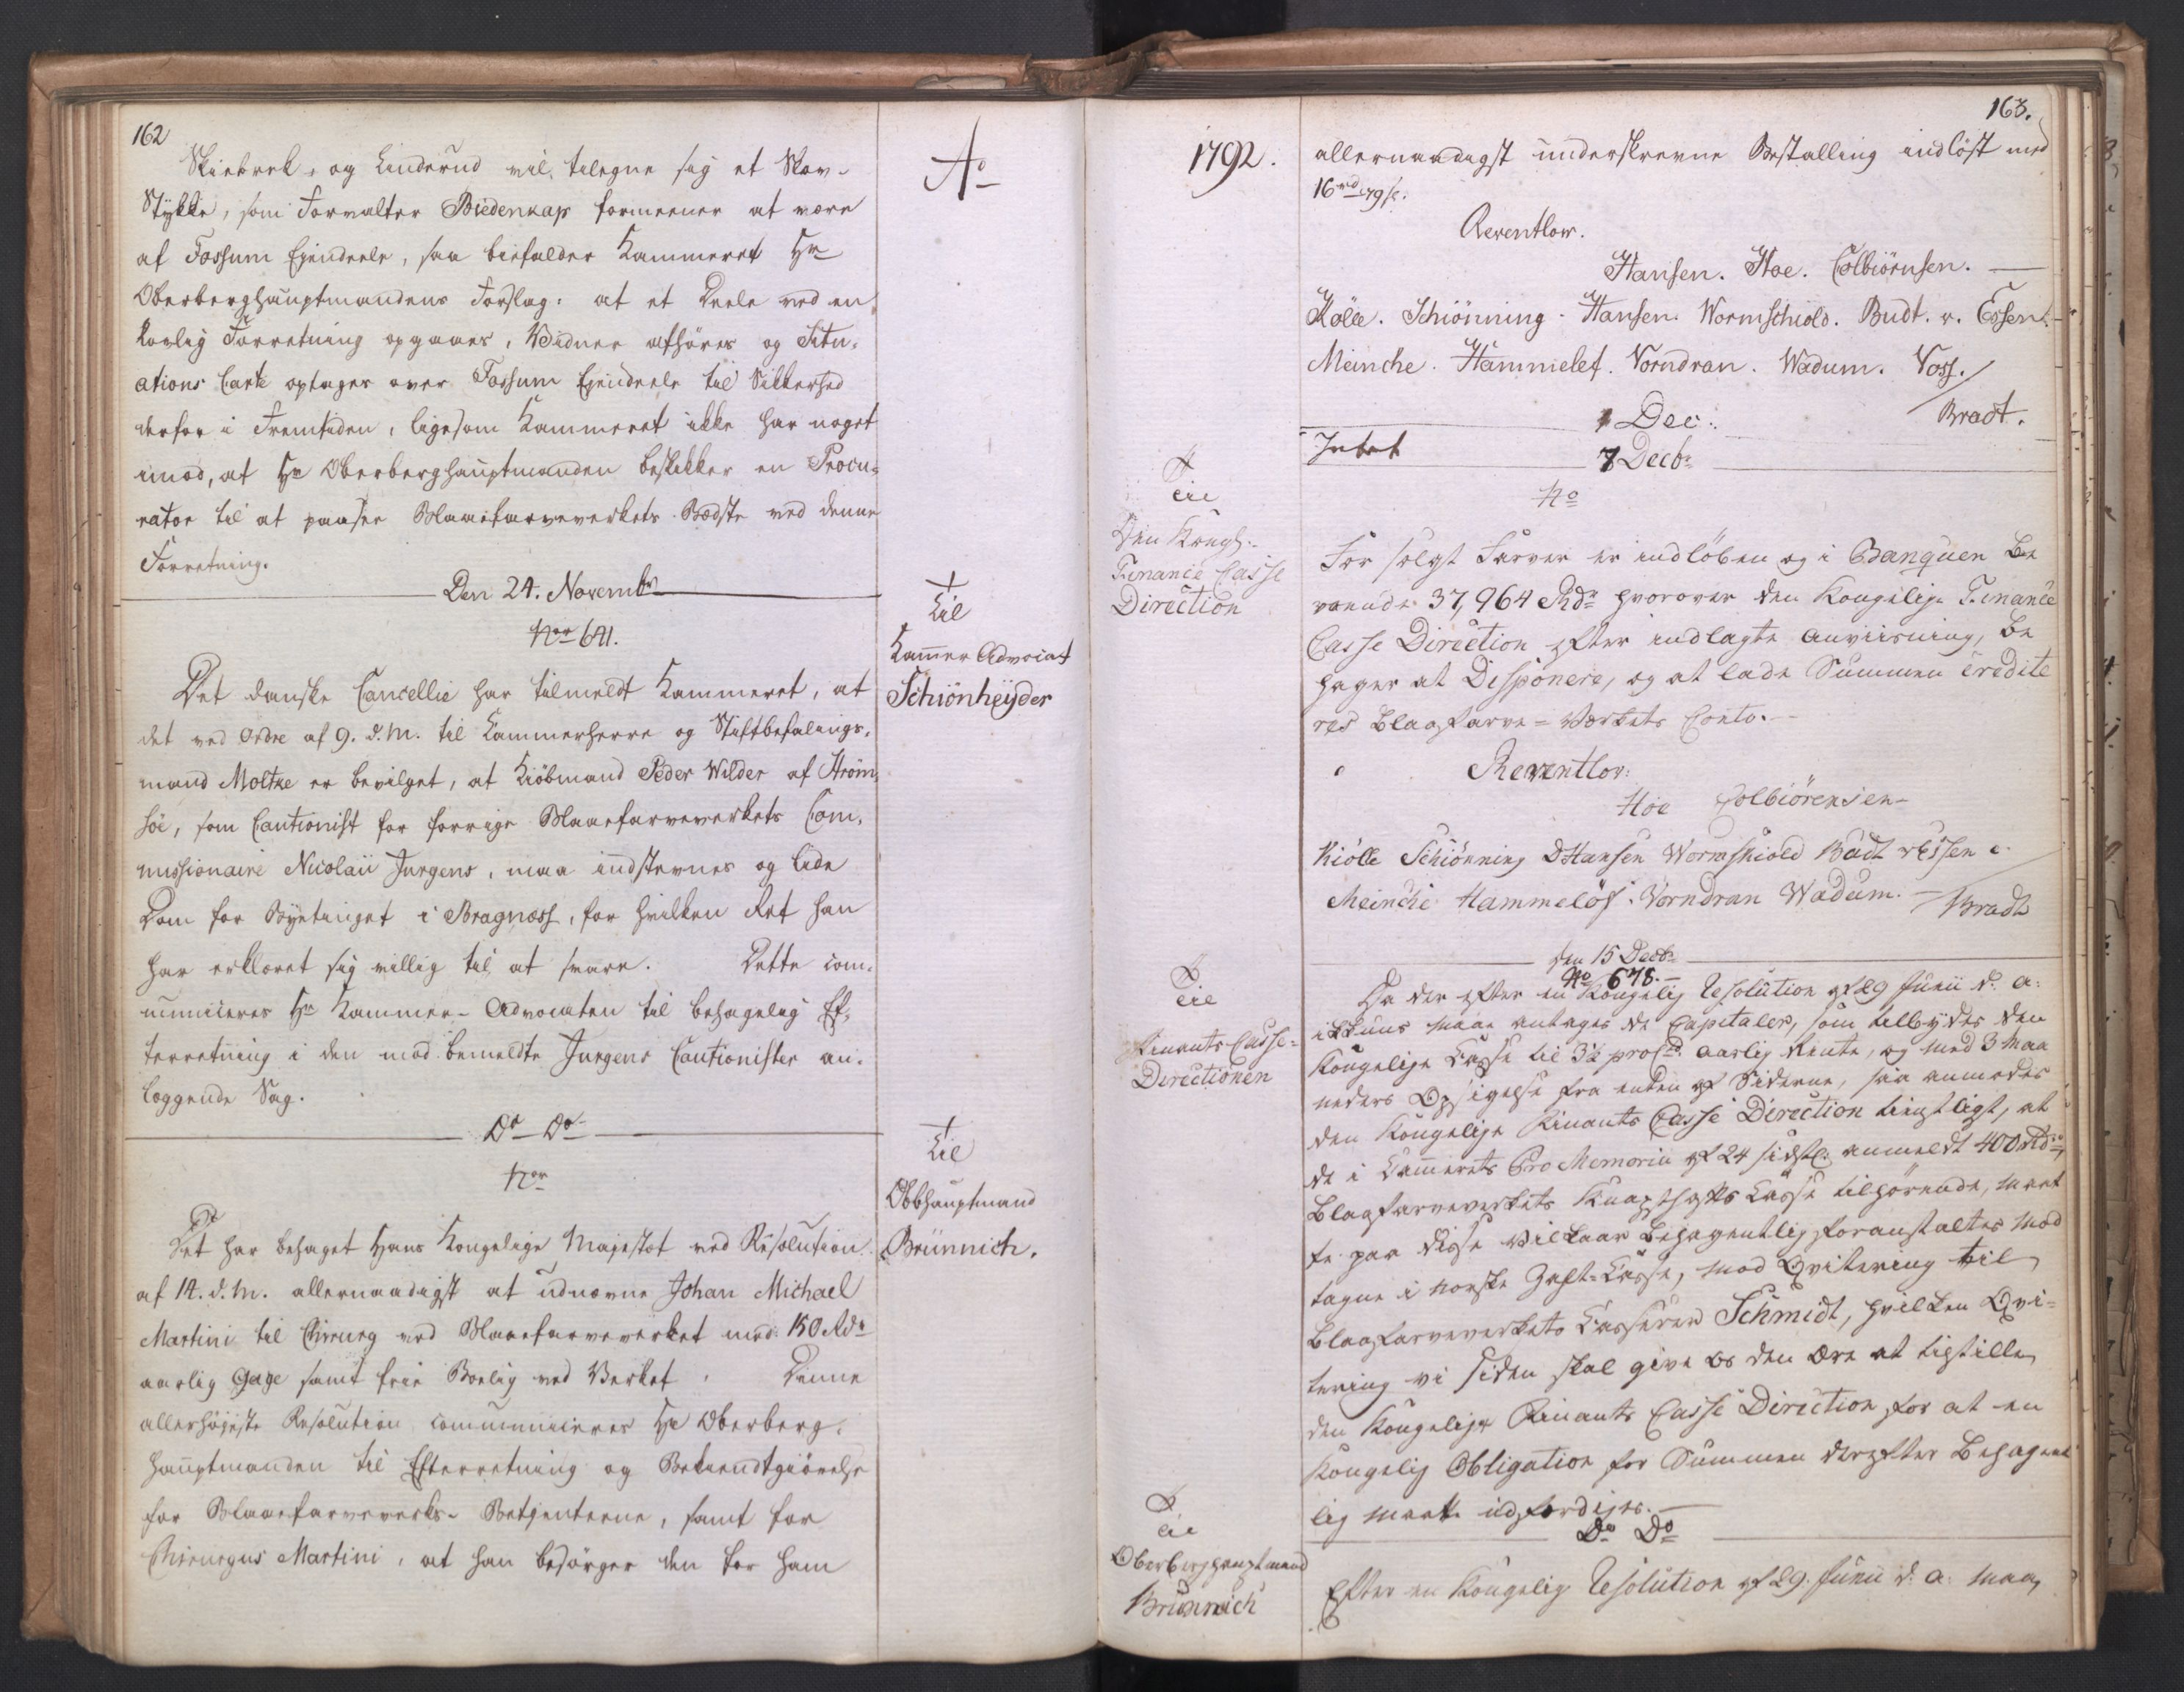 162
Skiebrek, og Linderud vil tilegne sig et Skov-
Stykke, som Forvalter Biedenkap formeener at være
af Fossum Eiendeele, saa biefalder Kammeret Hr
Oberberghauptmandens Forslag: at et Deele ved en
Lovlig Forretning opgaaes, Vidner afhøres og Situ-
ations Carte optages over Fossum Eiendeele til Sikkerhed
derfor i Fremtiden, ligesom Kammeret ikke har noget
imod, at Hr Oberberghauptmanden beskikker en Procu-
rator til at paasee Blaaefarveverkets Bedste ved denne
Forretning.
Den 24. Novembr
Nor 641.
Det danske Cancellie har tilmeldt Kammeret, at
det ved Ordre af 9. d. M. til Kammerherre og Stiftbefalings-
mand Moltke er bevilget, at Kiöbmand Peder Wilder af Ström-
söe, som Cautionist for forrige Blaaefarveverkets Com-
missionaire Nicolaii Jurgens, maa indstevnes og lide
Dom for Byetinget i Bragnæss, for hvilken Ret han
har erklæret sig villig til at svare. Dette com-
municeres Hr Kammer-Advocaten til behagelig Ef-
terretning i den mod bemeldte Jurgens Cautionister an-
læggende Sag.
Do Do
Nor
Det har behaget Hans Kongelige Majestæt ved Resolution
af 14. d. M. allernaadigst at udnævne Johan Michael
Martini til Chirurg ved Blaaefarveverket med 150 Rdr
aarlig Gage samt frie Boelig ved Verket. Denne
allerhöjeste Resolution communiceres Hr Oberberg-
hauptmanden til Efterretning og Bekiendtgiörelse
for Blaaefarveverks-Betjenterne, samt for
Chirurgus Martini, at han besörger den for ham
Ao
Til
Kammer Advocat
Schiönheÿder
Til
Obbhauptmand
Brünnich.
1792.
Til
Den Kongl.
Finance Casse
Direction
Til
Finants-Casse-
Directionen
Til
Oberberghauptmand
Brünnich
163.
allernaadigst underskrevne Bestalling indlöst med
16 rd 79 s.
Reventlow.
Hansen. Hoe. Colbiörnsen.
Kölle. Schiönning. Hansen. Wormschiold. Budt. v. Essen.
Meincke. Hammelef. Vorndran. Wadum. Voss.
Bradt.
1 Dec:
Intet
7 Decbr
No
For solgt Farver er indlöben og i Banquen be
roende 37,964 Rdr hvorover den Kongelige Finance
Casse Direction efter indlagte Anviisning, be
hager at Disponere, og at lade Summen credite
res Blaafarve-Værkets Conto.
Reventlov.
Hoe Colbiörensen
Kiölle Schiönning DHansen Wormskiold Budt v Essen
Meincke Hammelöf. Vorndran Wadum.
Bradt
den 15 Decbr
No 678.
Da der efter en Kongelig Resolution af 29 Junii d. a:
ikkuns maae antages de Capitaler, som tilbydes den
Kongelige Casse til 3½ proC. aarlig Rente, og med 3 Maa
neders Opsigelse fra enden af Siderne, saa anmodes
den Kongelige Finants Casse Direction tienstligt, at
de i Kammerets Pro Memoria af 24 sidstl. anmeldt 400 Rdr
Blaafarveverkets Knapskafts Casse tilhörende, maat
te paa disse Vilkaar behagentlig foranstaltes mod
tagne i norske Zahl-Casse, mod Qvitering til
Blaafarveverkets Casserer Schmidt, hvilken Qvi-
tering vi siden skal give os den Ære at tilstille
den Kongelige Finants Casse Direction, for at en
Kongelig Obligation for Summen derefter behagent
lig maatte udfærdiges.
Do Do
Efter en Kongelig Resolution af 29. Junii d. a. maa